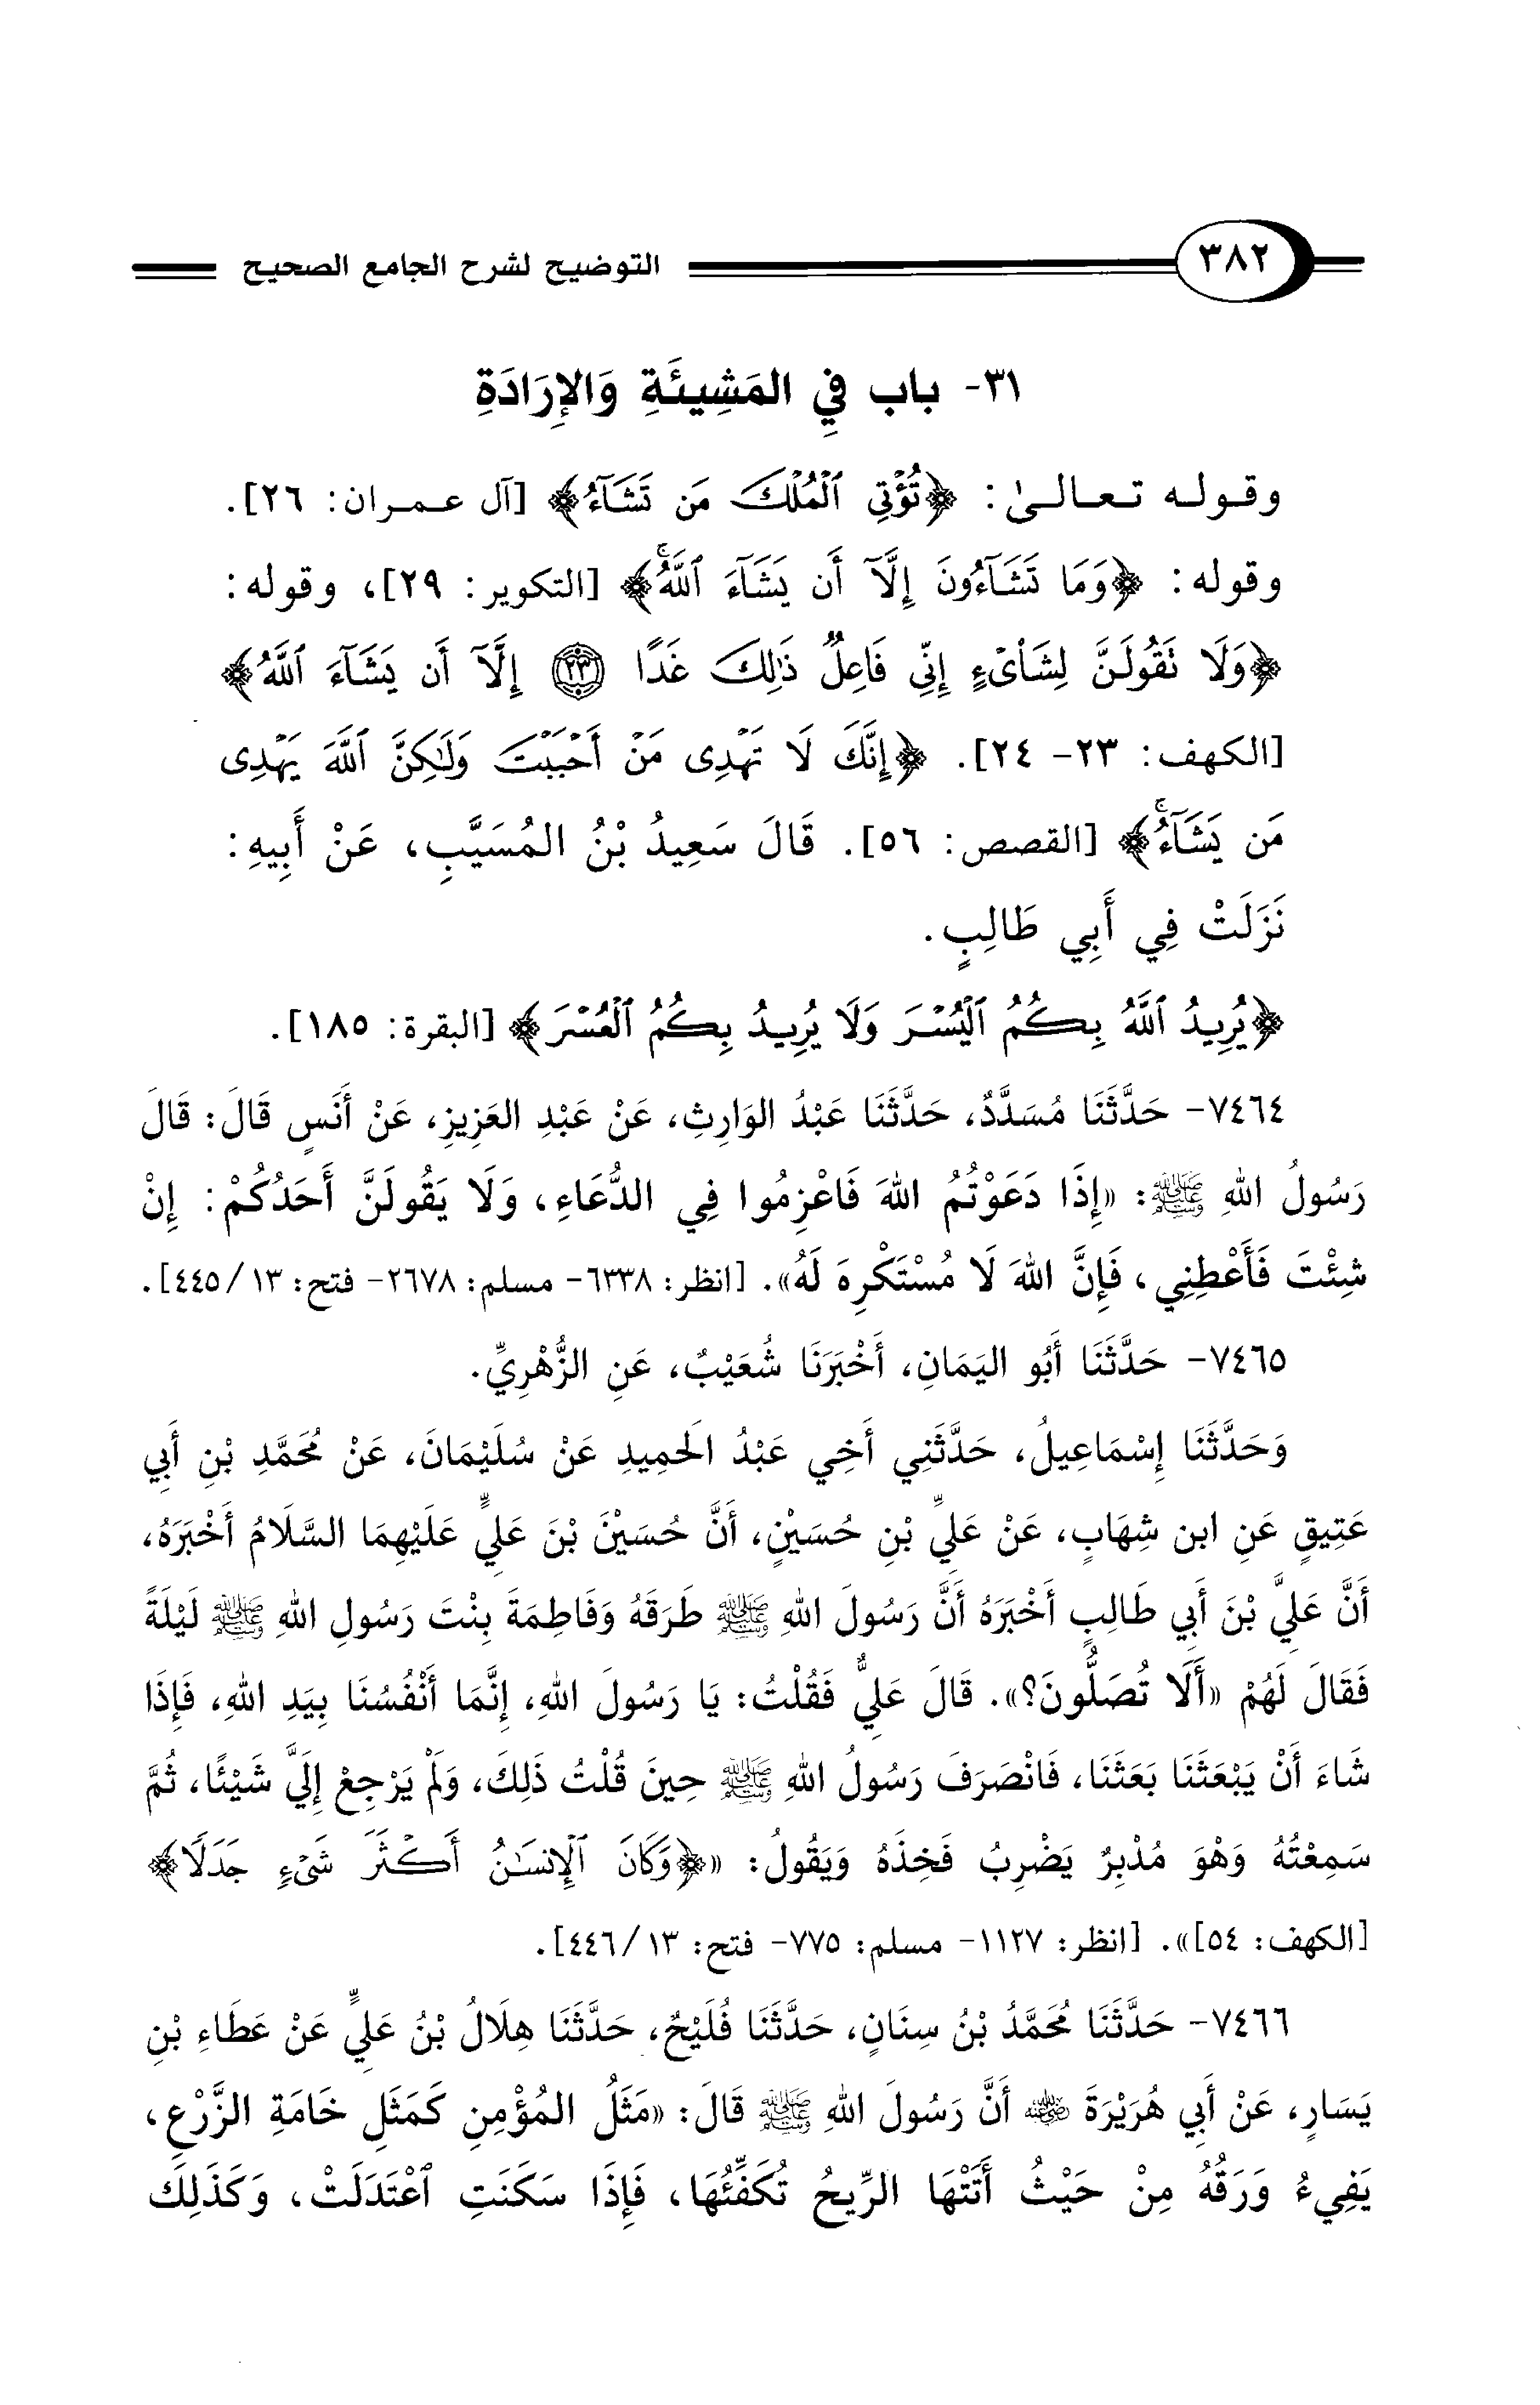 ٣٨٢
التوضيح لشرح الجامع الصحيح
٣١- باب فِي المَشِيئَةِ وَالإِرَادَةِ
وقوله تعالىٰ: ﴿تُؤْتِي ٱلْمُلْكَ مَن تَشَآءُ﴾ [آل عمران: ٢٦].
وقوله: ﴿وَمَا تَشَآءُونَ إِلَّآ أَن يَشَآءَ ٱللَّهُۚ﴾ [التكوير: ٢٩]، وقوله:
﴿وَلَا تَقُولَنَّ لِشَا۟ىْءٍ إِنِّي فَاعِلٌ ذَٰلِكَ غَدًا ٢٣ إِلَّآ أَن يَشَآءَ ٱللَّهُ﴾
[الكهف: ٢٣- ٢٤]. ﴿إِنَّكَ لَا تَهْدِى مَنْ أَحْبَبْتَ وَلَٰكِنَّ ٱللَّهَ يَهْدِى
مَن يَشَآءُۚ﴾ [القصص: ٥٦]. قَالَ سَعِيدُ بْنُ المُسَيَّبِ، عَنْ أَبِيهِ:
نَزَلَتْ فِي أَبِي طَالِبٍ.
﴿يُرِيدُ ٱللَّهُ بِكُمُ ٱلْيُسْرَ وَلَا يُرِيدُ بِكُمُ ٱلْعُسْرَ﴾ [البقرة: ١٨٥].
٧٤٦٤- حَدَّثَنَا مُسَدَّدٌ، حَدَّثَنَا عَبْدُ الوَارِثِ، عَنْ عَبْدِ العَزِيزِ، عَنْ أَنَسٍ قَالَ: قَالَ
رَسُولُ اللهِ ﷺ: «إِذَا دَعَوْتُمُ اللهَ فَاعْزِمُوا فِي الدُّعَاءِ، وَلَا يَقُولَنَّ أَحَدُكُمْ: إِنْ
شِئْتَ فَأَعْطِنِي، فَإِنَّ اللهَ لَا مُسْتَكْرِهَ لَهُ». [انظر: ٦٣٣٨- مسلم: ٢٦٧٨- فتح: ١٣/ ٤٤٥].
٧٤٦٥- حَدَّثَنَا أَبُو اليَمَانِ، أَخْبَرَنَا شُعَيْبٌ، عَنِ الزُّهْرِيِّ.
وَحَدَّثَنَا إِسْمَاعِيلُ، حَدَّثَنِي أَخِي عَبْدُ الَحمِيدِ عَنْ سُلَيْمَانَ، عَنْ مُحَمَّدِ بْنِ أَبِي
عَتِيقٍ عَنِ ابن شِهَابٍ، عَنْ عَلِيِّ بْنِ حُسَيْنٍ، أَنَّ حُسَيْنَ بْنَ عَلِيٍّ عَلَيْهِمَا السَّلَامُ أَخْبَرَهُ،
أَنَّ عَلِيَّ بْنَ أَبِي طَالِبٍ أَخْبَرَهُ أَنَّ رَسُولَ اللهِ ﷺ طَرَقَهُ وَفَاطِمَةَ بِنْتَ رَسُولِ اللهِ ﷺ لَيْلَةً
فَقَالَ لَهُمْ «أَلَا تُصَلُّونَ؟». قَالَ عَلِيٌّ فَقُلْتُ: يَا رَسُولَ اللهِ، إِنَّمَا أَنْفُسُنَا بِيَدِ اللهِ، فَإِذَا
شَاءَ أَنْ يَبْعَثَنَا بَعَثَنَا، فَانْصَرَفَ رَسُولُ اللهِ ﷺ حِينَ قُلْتُ ذَلِكَ، وَلَمْ يَرْجِعْ إِلَيَّ شَيْئًا، ثُمَّ
سَمِعْتُهُ وَهْوَ مُدْبِرٌ يَضْرِبُ فَخِذَهُ وَيَقُولُ: «﴿وَكَانَ ٱلْإِنسَٰنُ أَكْثَرَ شَىْءٍ جَدَلًا﴾
[الكهف: ٥٤]». [انظر: ١١٢٧- مسلم: ٧٧٥- فتح: ١٣/ ٤٤٦].
٧٤٦٦- حَدَّثَنَا مُحَمَّدُ بْنُ سِنَانٍ، حَدَّثَنَا فُلَيْحٌ، حَدَّثَنَا هِلَالُ بْنُ عَلِيٍّ عَنْ عَطَاءِ بْنِ
يَسَارٍ، عَنْ أَبِي هُرَيْرَةَ رضي الله عنه أَنَّ رَسُولَ اللهِ ﷺ قَالَ: «مَثَلُ المُؤْمِنِ كَمَثَلِ خَامَةِ الزَّرْعِ،
يَفِيءُ وَرَقُهُ مِنْ حَيْثُ أَتَتْهَا الرِّيحُ تُكَفِّئُهَا، فَإِذَا سَكَنَتِ ٱعْتَدَلَتْ، وَكَذَلِكَ